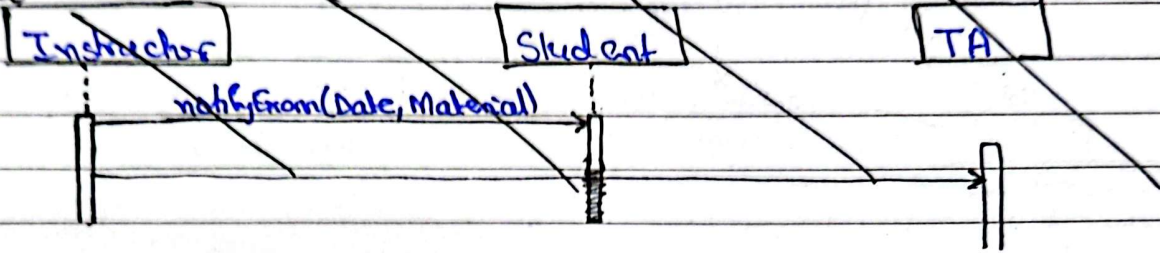 Instructor Student TA
notifyExam(Date, Material)